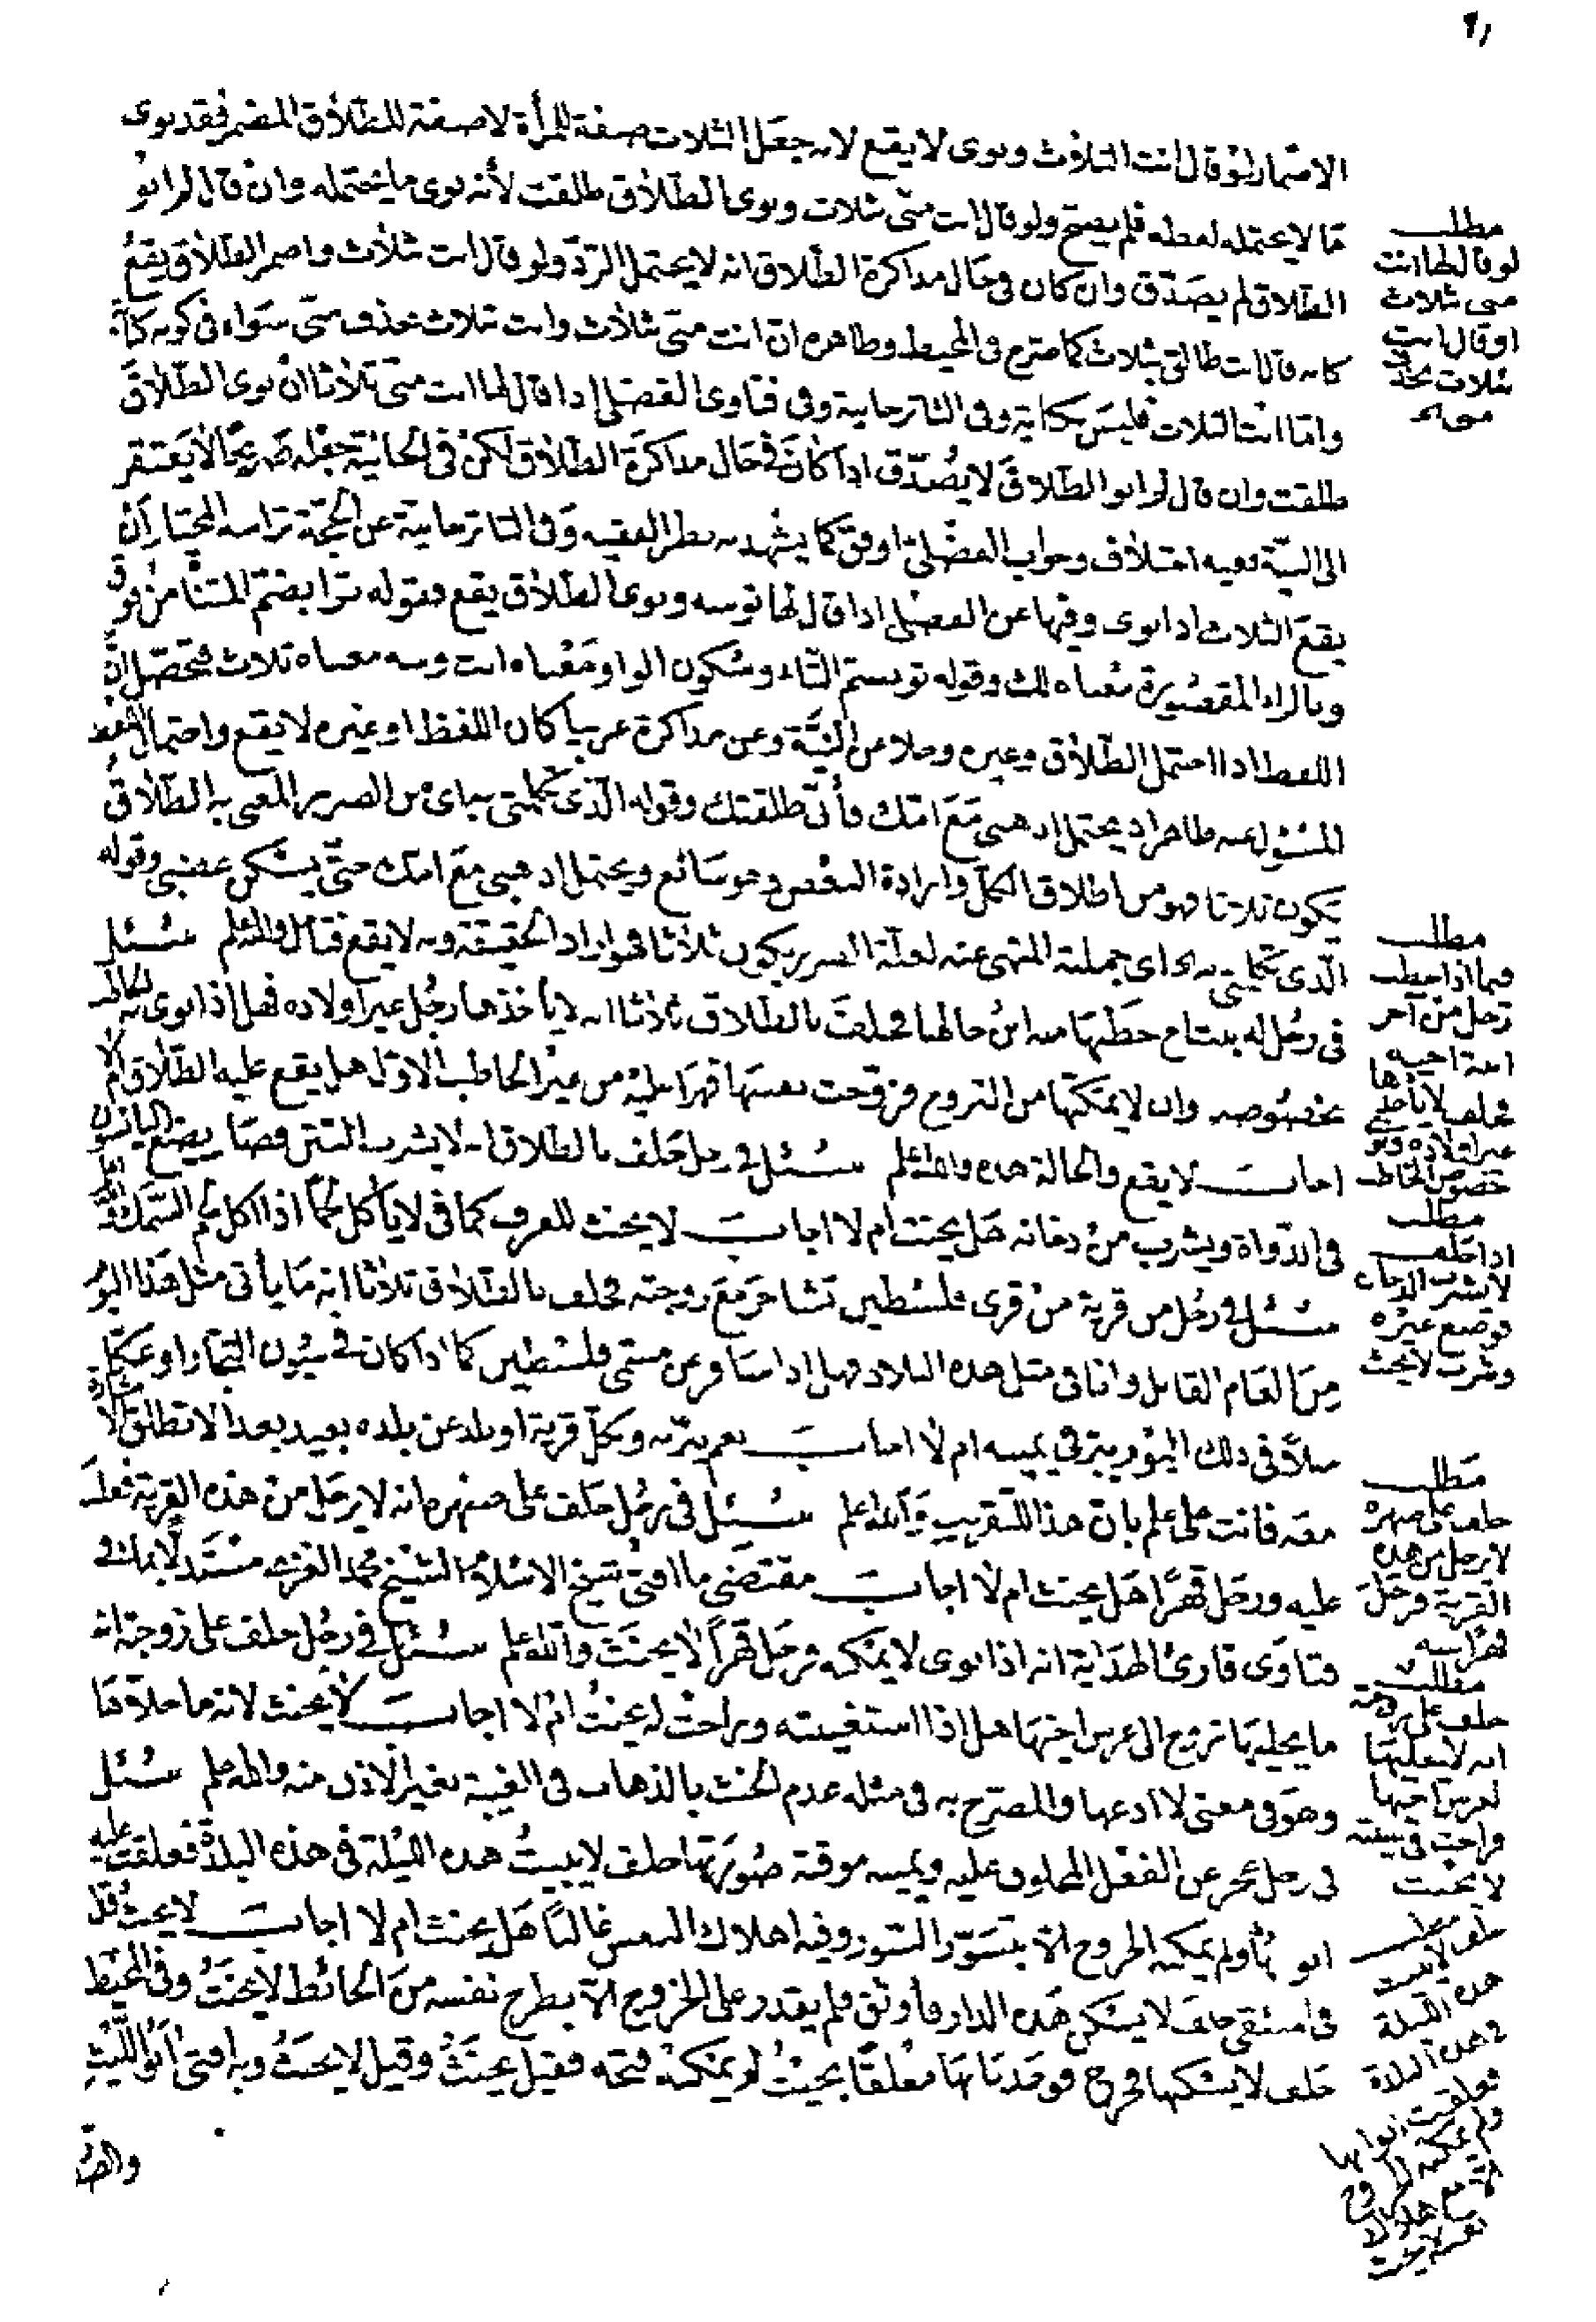 الاضمار لو قال انت الثلاث ونوى لا يقع لانه جعل الثلاث صفة للمرأة لا صفة للطلاق المضمر فقد نوى
ما لا يحتمله لفظه فلم يصح ولو قال انت منى ثلاث ونوى الطلاق طلقت لأنه نوى ما يحتمله وان قال لم انو
الطلاق لم يصدق وان كان في حال مذاكرة الطلاق انه لا يحتمل الرد ولو قال انت ثلاث واضمر الطلاق يقع
كانه قال انت طالق بثلاث كما صرح في المحيط وظاهره ان انت منى ثلاث وانت ثلاث بحذف منى سواء في كونه كناية
واما انت الثلاث فليس بكناية وفى التاترخانية وفى فتاوى الفضلى اذا قال لها انت منى ثلاثا ان نوى الطلاق
طلقت وان قال لم انو الطلاق لا يصدق اذا كان في حال مذاكرة الطلاق لكن فى الخانية جعله صريحا لا يفتقر
الى النية ففيه اختلاف وجواب الفضلى اوفق كما يشهد به نظر الفقيه وفى التاترخانية عن الحجة ترا سه المختار أن
يقع الثلاث اذا نوى وفيها عن الفضلى اذا قال لها توسه ونوى الطلاق يقع فقوله ترا بضم المثناة من فوق
وبالراء المقصورة معناه لك وقوله تو بضم التاء وسكون الواو ومعناه انت وسه معناه ثلاث فتحصل ان
اللفظ اذا احتمل الطلاق وغيره وخلا عن النية وعن مذاكرة عربيا كان اللفظ او غيره لا يقع واحتمال اللفظ
المسئول عنه ظاهر اذ يحتمل اذهبى مع امك فأنى طلقتك وقوله الذى تكلمتى به اى من الضرر المعنى به الطلاق
يكون ثلاثا فهو من اطلاق الكل وارادة البعض وهو سائغ ويحتمل اذهبى مع امك حتى يسكن غضبى وقوله
الذى تكلمتى به اى جملته المنهى عنه لعلة الضرر يكون ثلاثا فهو اراد الحقيقة وبه لا يقع فتأمل والله اعلم سئل
فى رجل له بنت اخ خطبها منه ابن خالها فحلف بالطلاق ثلاثا انه لا يأخذها رجل غير اولاده فهل اذا نوى به الخاطب
بخصوصه وان لا يمكنها من التزوج فزوجت نفسها قهرا عليه من غير الخاطب الاول هل يقع عليه الطلاق ام لا
اجاب لا يقع والحالة هذه والله اعلم سئل في رجل حلف بالطلاق انه لا يشرب التتن فصار يضع اليانسون
فى الدواة ويشرب من دخانه هل يحنث ام لا اجاب لا يحنث للعرف كما فى لا يأكل لحما اذا اكل لحم السمك والله اعلم
سئل فى رجل من قرية من قرى فلسطين تشاجر مع زوجته فحلف بالطلاق ثلاثا انه ما يأتى مثل هذا اليوم
من العام القابل وانا فى مثل هذه البلاد فهل اذا سافر عن مسمى فلسطين كما اذا كان فى سيون التجار او عكا
مثلا فى ذلك اليوم يبر في يمينه ام لا اجاب نعم يبر به وبكل قرية او بلد عن بلده بعيد بعدا لا تطلق الاشارة
معه فانت على علم بان هذا للتقريب والله اعلم سئل فى رجل حلف على صهره انه لا يرحل من هذه القرية فعلق
عليه ورحل قهرا هل يحنث ام لا اجاب مقتضى ما افتى شيخ الاسلام الشيخ محمد الغزى مستدلا بما فى
فتاوى قارئ الهداية انه اذا نوى لا يمكنه فرحل قهرا لا يحنث والله اعلم سئل في رجل حلف على زوجته انه
ما يخليها تروح الى عرس اختها هل اذا استغيبته وراحت له يحنث ام لا اجاب لا يحنث لانه ما خلاها
وهو فى معنى لا ادعها والمصرح به فى مثله عدم الحنث بالذهاب فى الغيبة بغير الاذن منه والله اعلم سئل
فى رجل عجز عن الفعل المحلوف عليه ويمينه موقتة صورتها حلف لا يبيت هذه الليلة فى هذه البلدة فغلقت عليه
ابوابها ولم يمكنه الخروج الا بتسور السور وفيه اهلاك النفس غالبا هل يحنث ام لا اجاب لا يحنث قال
فى المنتقى حلف لا يسكن هذه الدار فأوثق فلم يقدر على الخروج الا بطرح نفسه من الحائط لا يحنث وفى المحيط
حلف لا يسكنها فخرج فوجد بابها مغلقا بحيث لم يمكنه فتحه فقيل يحنث وقيل لا يحنث وبه افتى ابو الليث
مطلب
لو قال لها انت
منى ثلاث
او قال انت
ثلاث بحذف
منى
مطلب
فيما اذا خطب
رجل من آخر
ابنة اخيه
فحلف لا يأخذها
غير اولاده ونوى
خصوص الخاطب
مطلب
اذا حلف
لا يشرب الدخان
فوضع غيره
وشرب لا يحنث
مطلب
حلف على صهره
لا يرحل من هذه
القرية فرحل
قهرا
مطلب
حلف على زوجته
انه لا يخليها
لعرس اختها
فراحت فى غيبته
لا يحنث
مطلب
حلف لا يبيت
هذه الليلة
فى هذه البلدة
فغلقت ابوابها
ولم يمكنه الخروج
لا يحنث